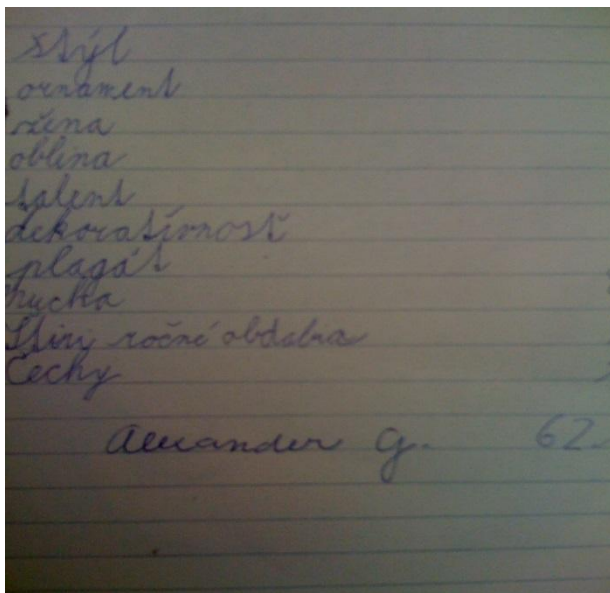 štýl
ornament
žena
oblina
talent
dekoratívnosť
plagát
Mucha
Štiry ročné obdobia
Čechy
Alexander G. 62.